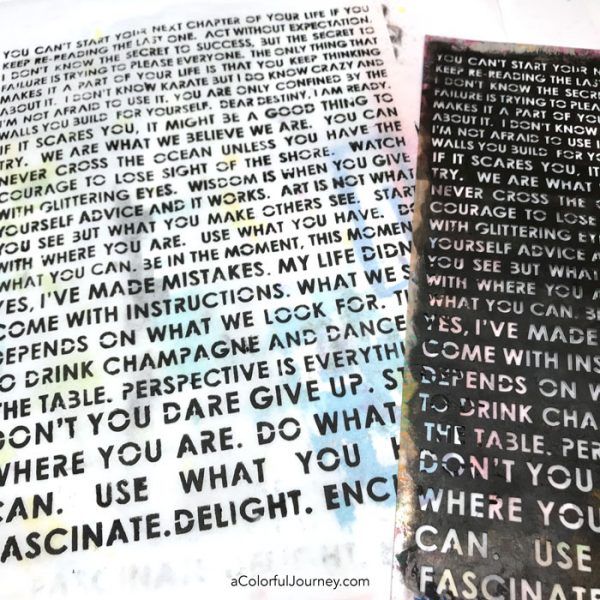 YOU CAN'T START YOUR NEXT CHAPTER OF YOUR LIFE IF YOU
KEEP RE-READING THE LAST ONE. ACT WITHOUT EXPECTATION.
I DON'T KNOW THE SECRET TO SUCCESS, BUT THE SECRET TO
FAILURE IS TRYING TO PLEASE EVERYONE. THE ONLY THING THAT
MAKES IT A PART OF YOUR LIFE IS THAT YOU KEEP THINKING
ABOUT IT. I DON'T KNOW KARATE BUT I DO KNOW CRAZY AND
I'M NOT AFRAID TO USE IT. YOU ARE ONLY CONFINED BY THE
WALLS YOU BUILD FOR YOURSELF. DEAR DESTINY, I AM READY.
IF IT SCARES YOU, IT MIGHT BE A GOOD THING TO
TRY. WE ARE WHAT WE BELIEVE WE ARE. YOU CAN
NEVER CROSS THE OCEAN UNLESS YOU HAVE THE
COURAGE TO LOSE SIGHT OF THE SHORE. WATCH
WITH GLITTERING EYES. WISDOM IS WHEN YOU GIVE
YOURSELF ADVICE AND IT WORKS. ART IS NOT WHAT
YOU SEE BUT WHAT YOU MAKE OTHERS SEE. START
WITH WHERE YOU ARE. USE WHAT YOU HAVE. DO
WHAT YOU CAN. BE IN THE MOMENT, THIS MOMEN
YES, I'VE MADE MISTAKES. MY LIFE DIDN
COME WITH INSTRUCTIONS. WHAT WE S
DEPENDS ON WHAT WE LOOK FOR. T
TO DRINK CHAMPAGNE AND DANCE
THE TABLE. PERSPECTIVE IS EVERYTHI
DON'T YOU DARE GIVE UP. ST
WHERE YOU ARE. DO WHAT
CAN. USE WHAT YOU H
FASCINATE.DELIGHT. ENCH
YOU CAN'T START YOUR N
KEEP RE-READING THE LAS
I DON'T KNOW THE SECRE
FAILURE IS TRYING TO PLEAS
MAKES IT A PART OF YOU
ABOUT IT. I DON'T KNOW
I'M NOT AFRAID TO USE I
WALLS YOU BUILD FOR YO
IF IT SCARES YOU, IT
TRY. WE ARE WHAT
NEVER CROSS THE
COURAGE TO LOSE
WITH GLITTERING EYE
YOURSELF ADVICE A
YOU SEE BUT WHAT
WITH WHERE YOU A
WHAT YOU CAN. BE
YES, I'VE MADE
COME WITH INS
DEPENDS ON W
TO DRINK CHA
THE TABLE. PER
DON'T YOU
WHERE YOU
CAN. USE
FASCINATE
aColorfulJourney.com